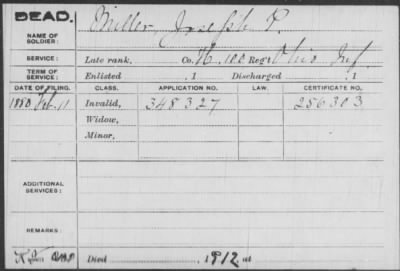 DEAD.
NAME OF SOLDIER: Miller, Joseph P.
SERVICE: Late rank, Co. H, 100 Reg't Ohio Inf.
TERM OF SERVICE: Enlisted , 1 Discharged , 1
DATE OF FILING. CLASS. APPLICATION NO. LAW. CERTIFICATE NO.
1880 Feb. 11 Invalid, 348327 256303
Widow,
Minor,
ADDITIONAL SERVICES:
REMARKS:
Died 1912 at